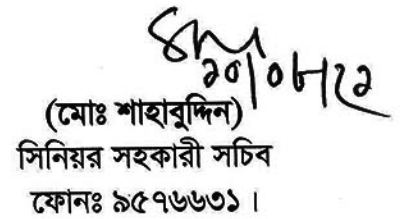 ২০/০৮/২২
(মোঃ শাহাবুদ্দিন)
সিনিয়র সহকারী সচিব
ফোনঃ ৯৫৭৬৬৩১।